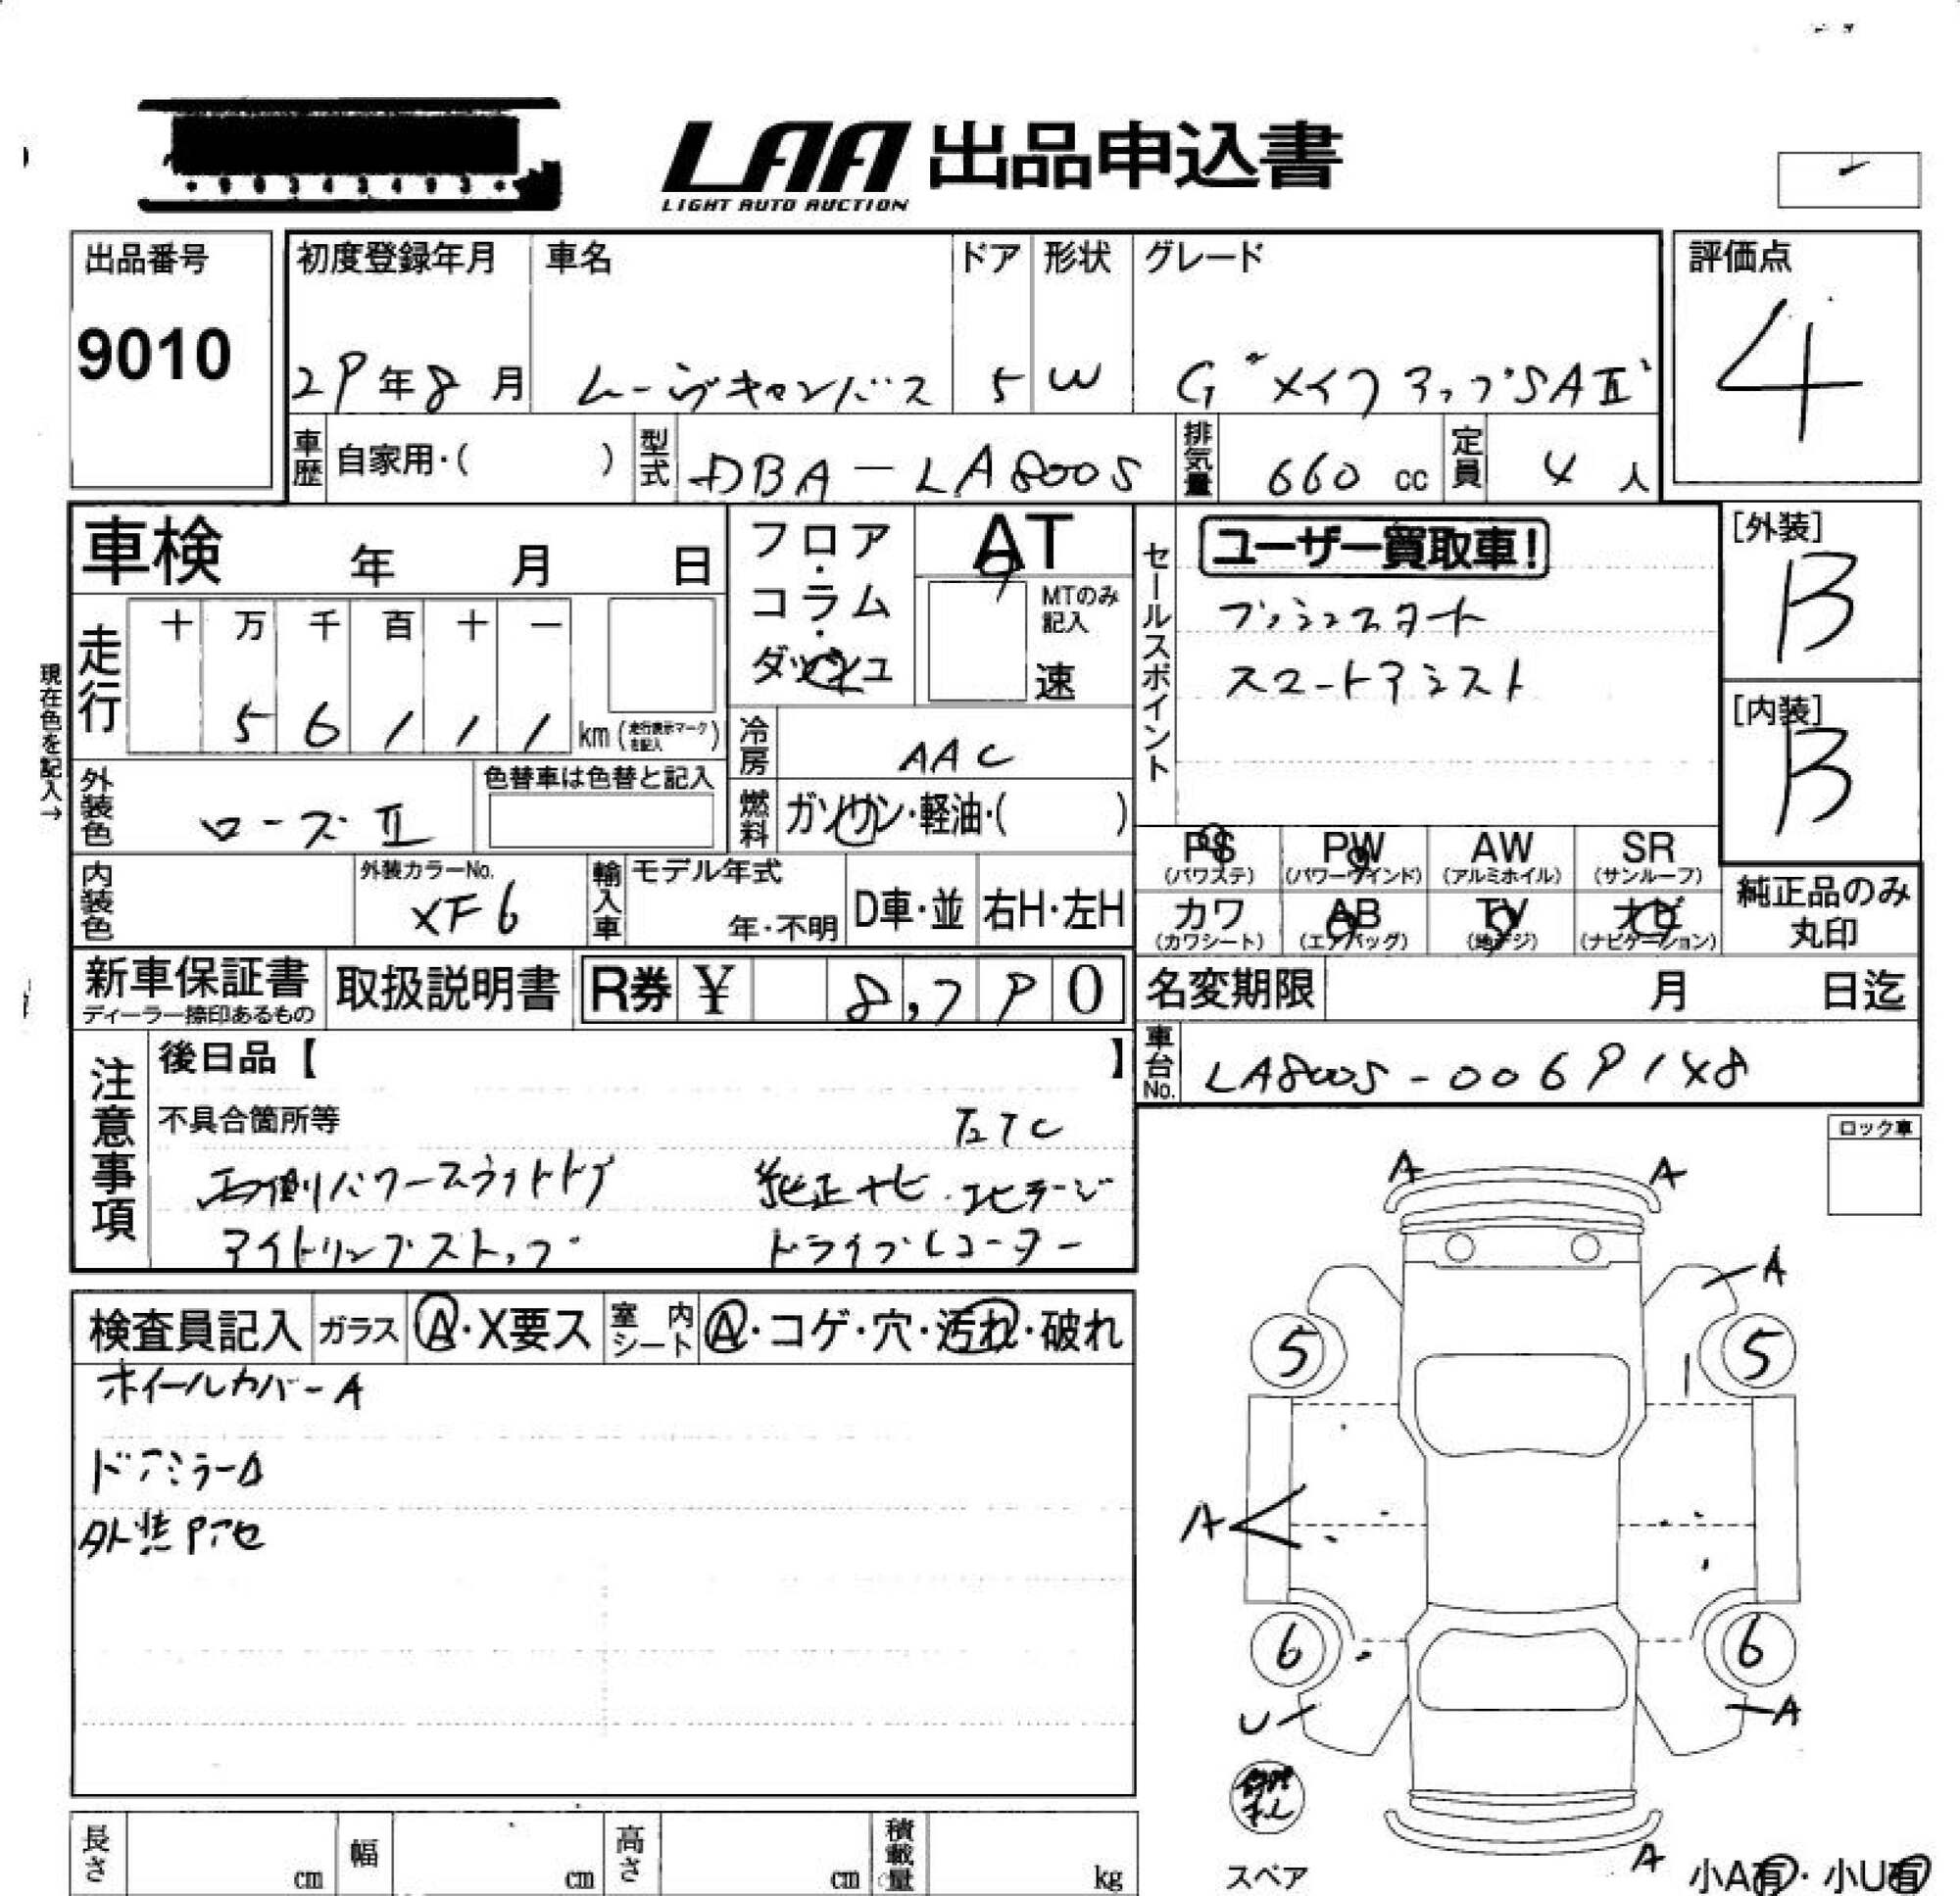 LAA 出品申込書
LIGHT AUTO AUCTION
出品番号
9010
初度登録年月
29年8月
車名
ムーヴキャンバス
ドア
5
形状
W
グレード
G"メイクアップSAⅡ"
評価点
4
車歴
自家用・( )
型式
DBA-LA800S
排気量
660 cc
定員
4 人
車検 年 月 日
フロア・コラム・ダッシュ
AT
MTのみ記入
速
セールスポイント
ユーザー買取車!
プッシュスタート
スマートアシスト
[外装]
B
[内装]
B
現在色を記入→
走行
十 万 千 百 十 一
5 6 1 1 1 km (走行表示マークを記入)
冷房
AAC
外装色
ローズⅡ
色替車は色替と記入
燃料
ガソリン・軽油・( )
PS
(パワステ)
PW
(パワーウインド)
AW
(アルミホイル)
SR
(サンルーフ)
カワ
(カワシート)
AB
(エアバッグ)
TV
(地デジ)
ナビ
(ナビゲーション)
純正品のみ丸印
内装色
外装カラーNo.
XF6
輸入車
モデル年式
年・不明
D車・並
右H・左H
新車保証書
ディーラー捺印あるもの
取扱説明書
R券 ¥ 8,790
名変期限 月 日迄
車台No.
LA800S-0069148
注意事項
後日品【 】
不具合箇所等
ETC
両側パワースライドドア 純正ナビ・地デジ
アイドリングストップ ドライブレコーダー
ロック車
検査員記入
ガラス
A・X要ス
室内シート
A・コゲ・穴・汚れ・破れ
ホイールカバーA
ドアミラーA
A A
A
5 5
A
6 6
U A
A
スペア
小A有・小U有
長さ cm
幅 cm
高さ cm
積載量 kg